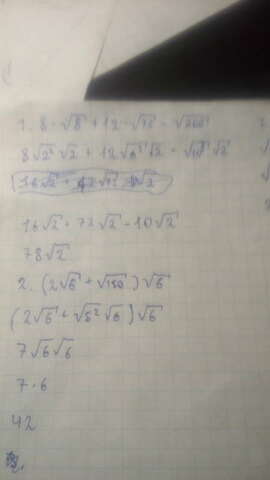 1. 8 · √8 + 12 · √72 - √200
8√2² √2 + 12√6² √2 - √10² √2
16√2 + 72√2 - 10√2
78√2
2. (2√6 + √150)√6
(2√6 + √5² √6)√6
7√6√6
7·6
42